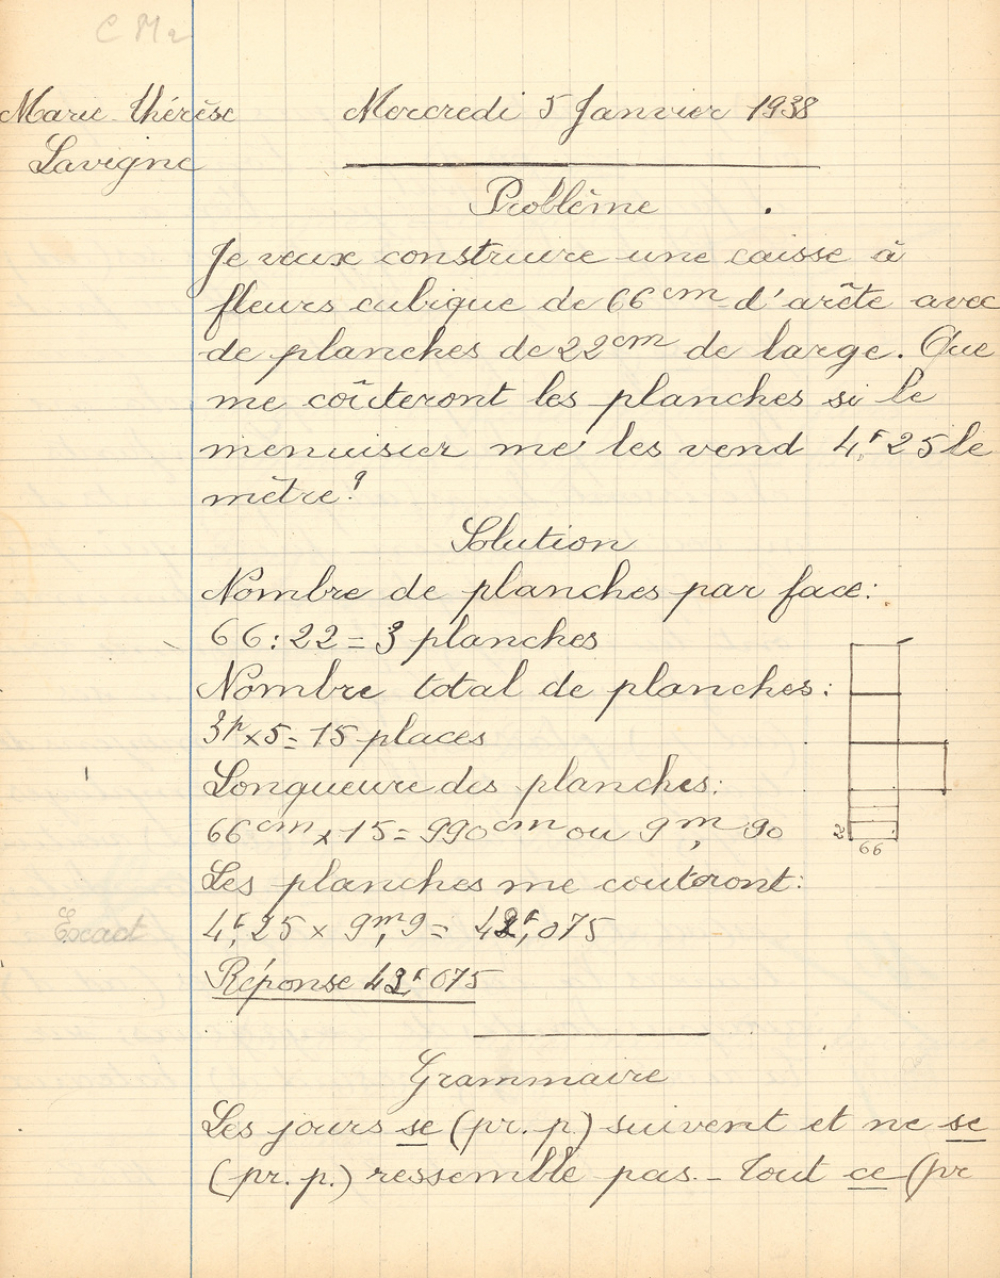 C M2
Marie-thérèse
Lavigne
Mercredi 5 Janvier 1938
Problème
Je veux construire une caisse à
fleurs cubique de 66cm d'arête avec
de planches de 22cm de large. Que
me coûteront les planches si le
menuisier me les vend 4,F25 le
mètre?
Solution
Nombre de planches par face:
66:22=3 planches
Nombre total de planches:
3p×5=15 places
Longueure des planches:
66cm×15=990cm ou 9m,90
22
66
Les planches me couteront:
Exact
4F,25 × 9m,9= 42F,075
Réponse 42F075
Grammaire
Les jours se (pr. p.) suivent et ne se
(pr. p.) ressemble pas.- Tout ce (pr